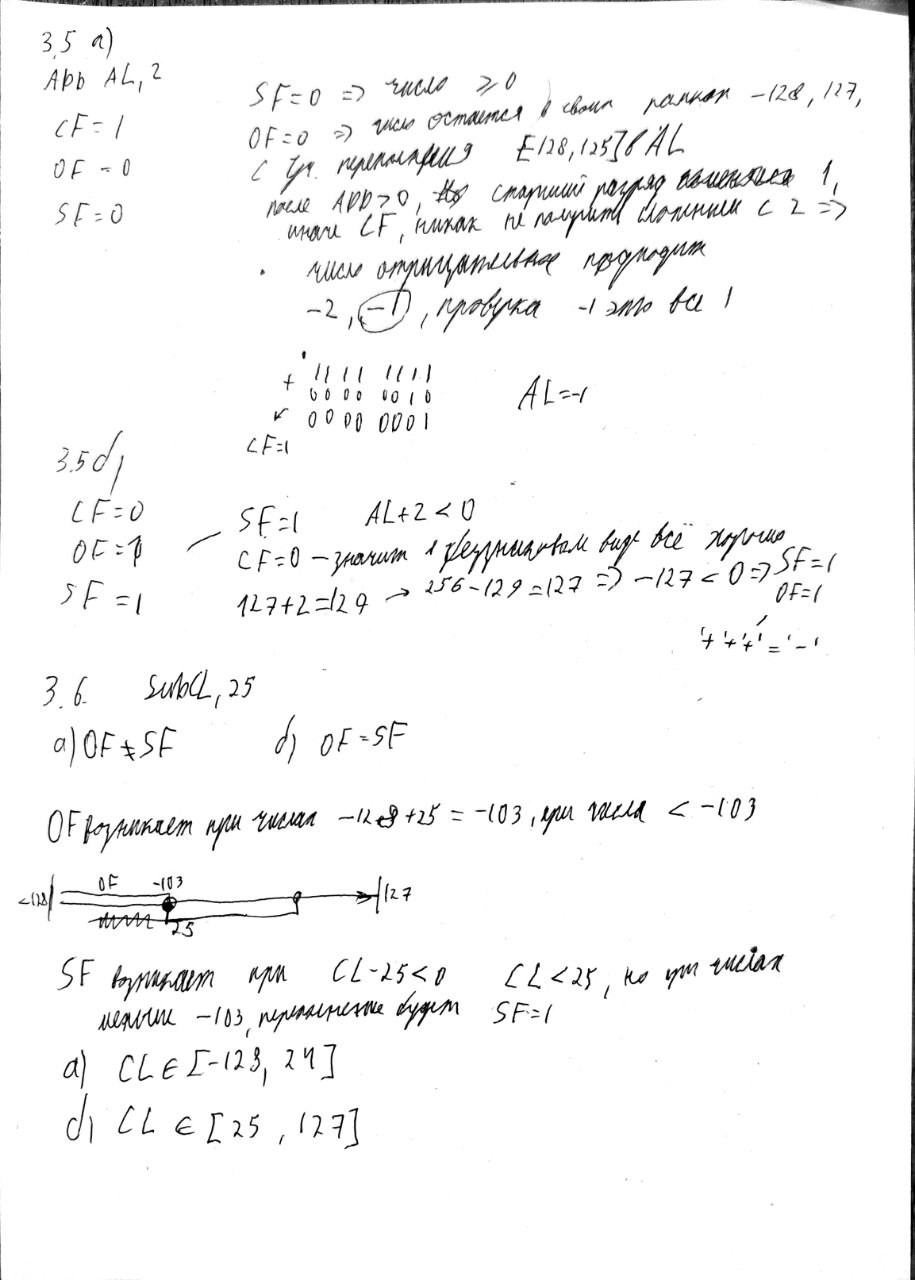 3.5 а)
ADD AL, 2
CF = 1
OF = 0
SF = 0
SF=0 => число ≥ 0
OF=0 => число остается в своих рамках -128, 127,
с уч. переполнения [-128, 125] в AL
после ADD > 0, старший разряд 1,
иначе CF, никак не получить сложением с 2 =>
число отрицательное подходит
-2, -1, проверка -1 это все 1
+ 1111 1111
0000 0010
0000 0001
CF=1
AL=-1
3.5 б)
CF=0
OF=1
SF=1
SF=1 AL+2<0
CF=0 – значит в беззнаковом виде всё хорошо
127+2=129 → 256-129=127 => -127<0 => SF=1
OF=1
'+'+'+'='-'
3.6. Sub CL, 25
а) OF≠SF б) OF=SF
OF возникает при числах -128+25 = -103, при числа < -103
OF -103
-128 127
25
SF возникает при CL-25<0 CL<25, но при числах
меньше -103, переполнение будет SF=1
а) CL ∈ [-128, 24]
б) CL ∈ [25, 127]